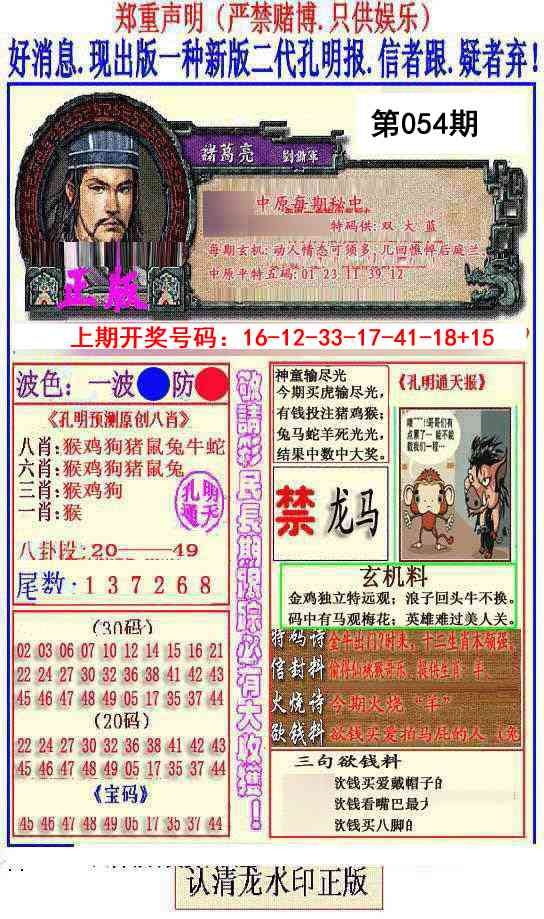 郑重声明（严禁赌博.只供娱乐）
好消息.现出版一种新版二代孔明报.信者跟.疑者弃!
第054期
諸葛亮 劉謝軍
中原每期秘中
特码供: 双 大 蓝
每期玄机: 动人情态可须多, 几回憔悴后庭兰。
中原平特五码: 01 23 11 39 12
正版
上期开奖号码：16-12-33-17-41-18+15
波色：一波 防
《孔明预测原创八肖》
八肖:猴鸡狗猪鼠兔牛蛇
六肖:猴鸡狗猪鼠兔
三肖:猴鸡狗
一肖:猴
孔明
通天
八卦段:20——49
尾数: 1 3 7 2 6 8
(30码)
02 03 06 05 07 10 12 14 15 16 21
22 24 27 30 32 33 36 38 41 42 43
45 46 47 48 49 05 17 35 37 44
(20码)
22 24 27 30 32 33 36 38 41 42 43
45 46 47 48 49 05 17 35 37 44
《宝码》
45 46 47 48 49 05 17 35 37 44
敬請彩民長期跟踪必有大收獲！
神童输尽光
今期买虎输尽光，
有钱投注猪鸡猴；
兔马蛇羊死光光，
结果中数中大奖。
《孔明通天报》
禁 龙马
玄机料
金鸡独立特远观；浪子回头牛不换。
码中有马观梅花；英雄难过美人关。
特码诗 金牛出门?时来，十二生肖本领强。
信封料
火烧诗 今期火烧“羊”
欲钱料 欲钱买爱拍马屁的人
三句欲钱料
欲钱买爱戴帽子的
欲钱看嘴巴最大
欲钱买八脚的
认清龙水印正版